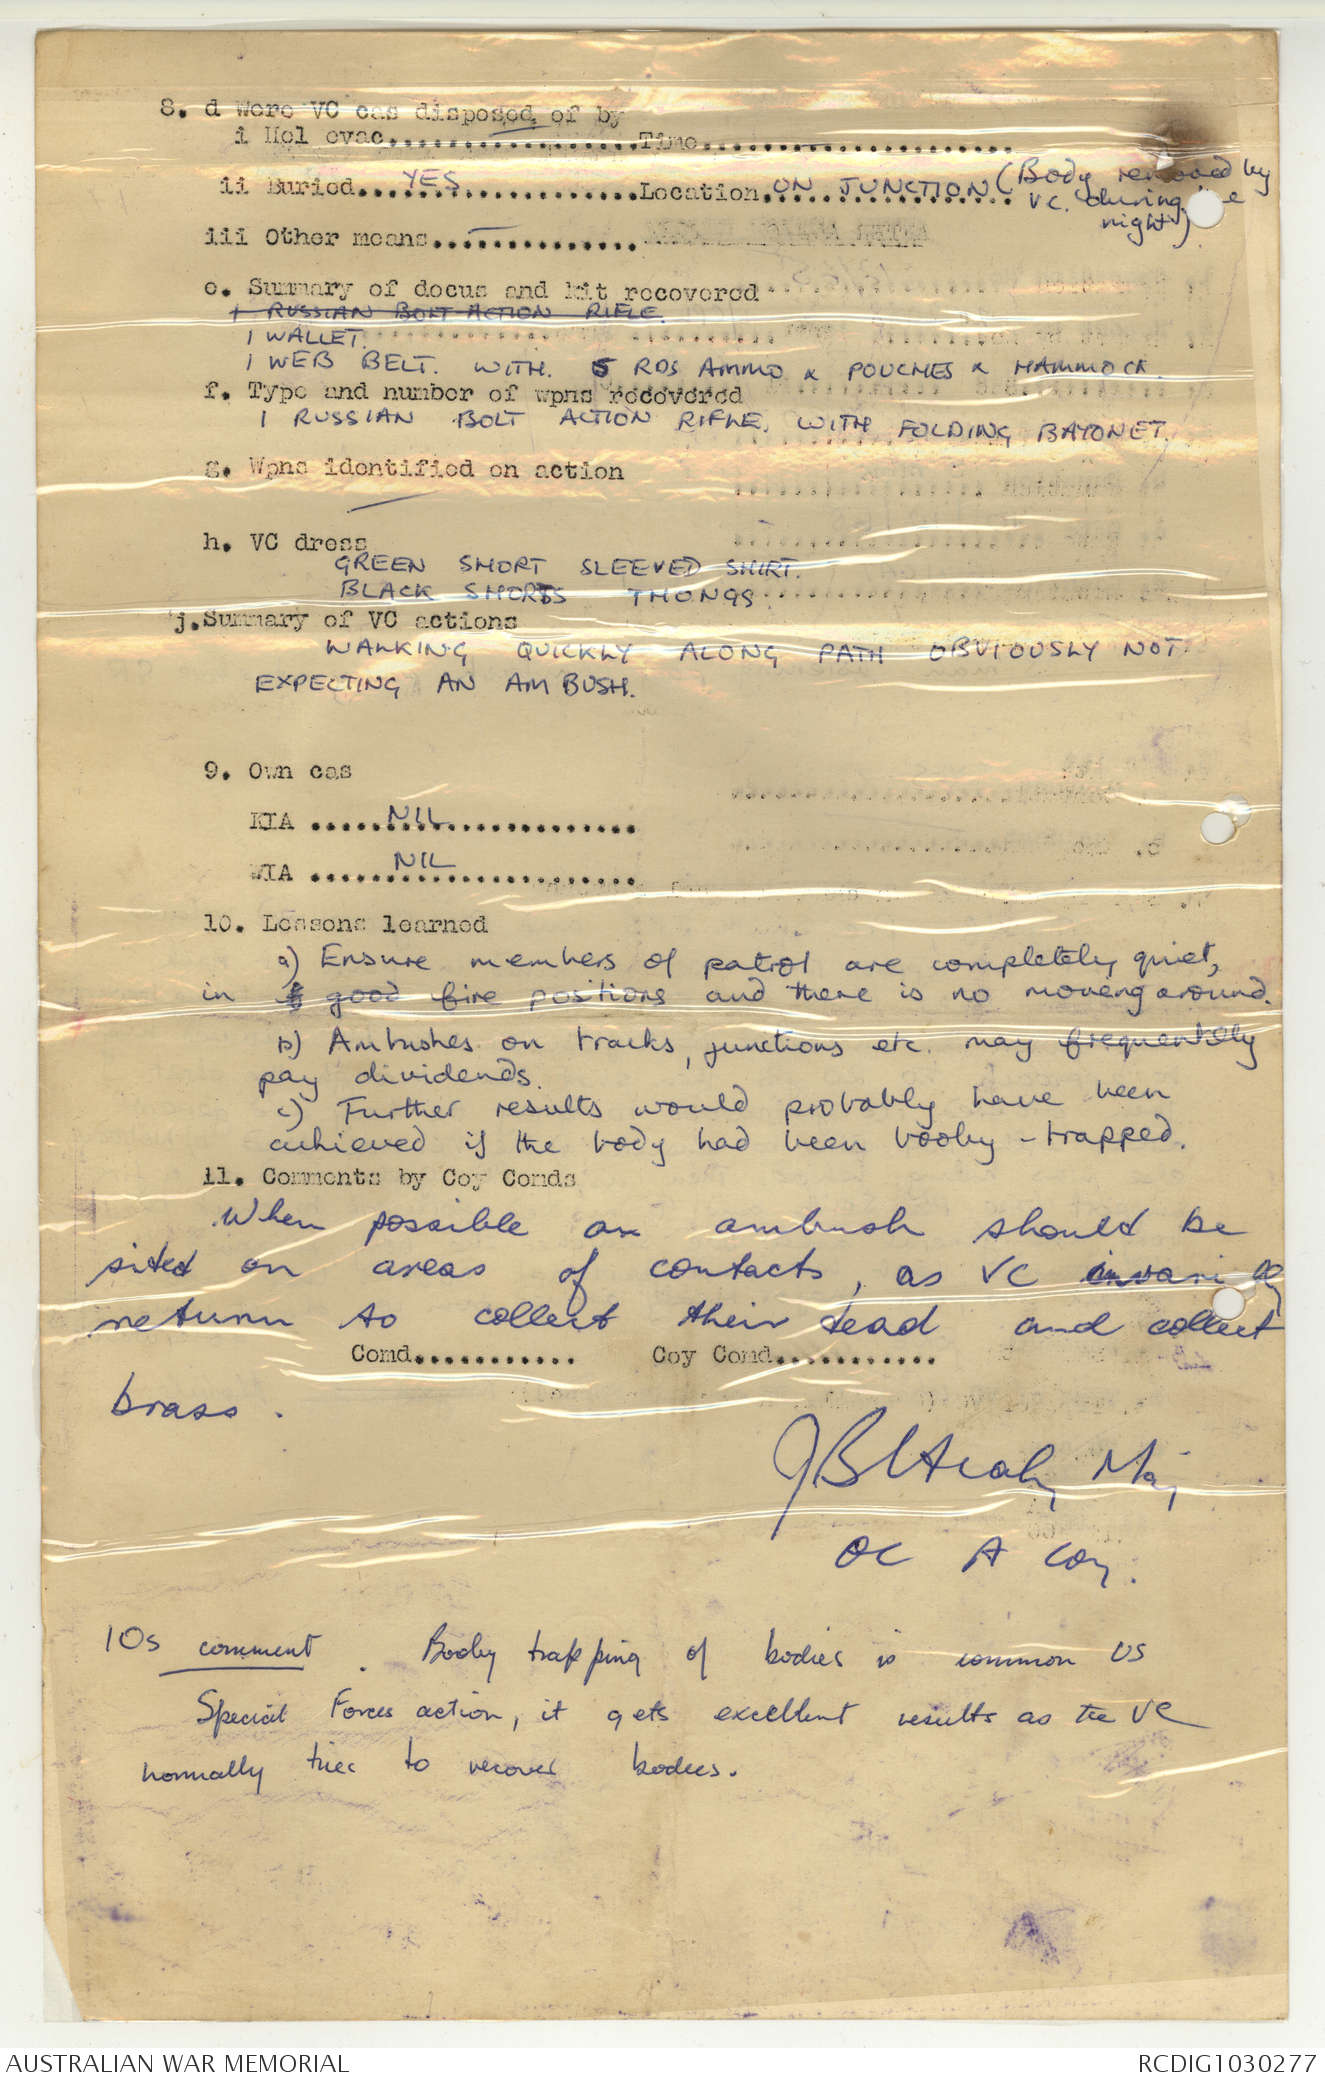 8. d Were VC cas disposed of by
i Hel evac.................Time.....................
ii Buried....YES............Location. ON JUNCTION (Body removed by
VC. during
night)
iii Other means...—...........
e. Summary of docus and kit recovered
1 RUSSIAN BOLT ACTION RIFLE.
1 WALLET.
1 WEB BELT. WITH. 5 RDS AMMO & POUCHES & HAMMOCK.
f. Type and number of wpns recovered
1 RUSSIAN BOLT ACTION RIFLE. WITH FOLDING BAYONET.
g. Wpns identified on action
—
h. VC dress
GREEN SHORT SLEEVED SHIRT.
BLACK SHORTS THONGS.
j. Summary of VC actions
WALKING QUICKLY ALONG PATH OBVIOUSLY NOT
EXPECTING AN AMBUSH.
9. Own cas
KIA .....NIL.............
WIA .....NIL.............
10. Lessons learned
a) Ensure members of patrol are completely quiet,
in good fire positions and there is no moving around.
b) Ambushes on tracks, junctions etc. may frequently
pay dividends.
c) Further results would probably have been
achieved if the body had been booby-trapped.
11. Comments by Coy Comds
When possible an ambush should be
sited on areas of contacts, as VC
return to collect their dead and collect
Comd........... Coy Comd...........
brass.
Maj
OC A Coy.
IOs comment. Booby trapping of bodies is common US
Special Forces action, it gets excellent results as the VC
normally tries to recover bodies.
AUSTRALIAN WAR MEMORIAL
RCDIG1030277